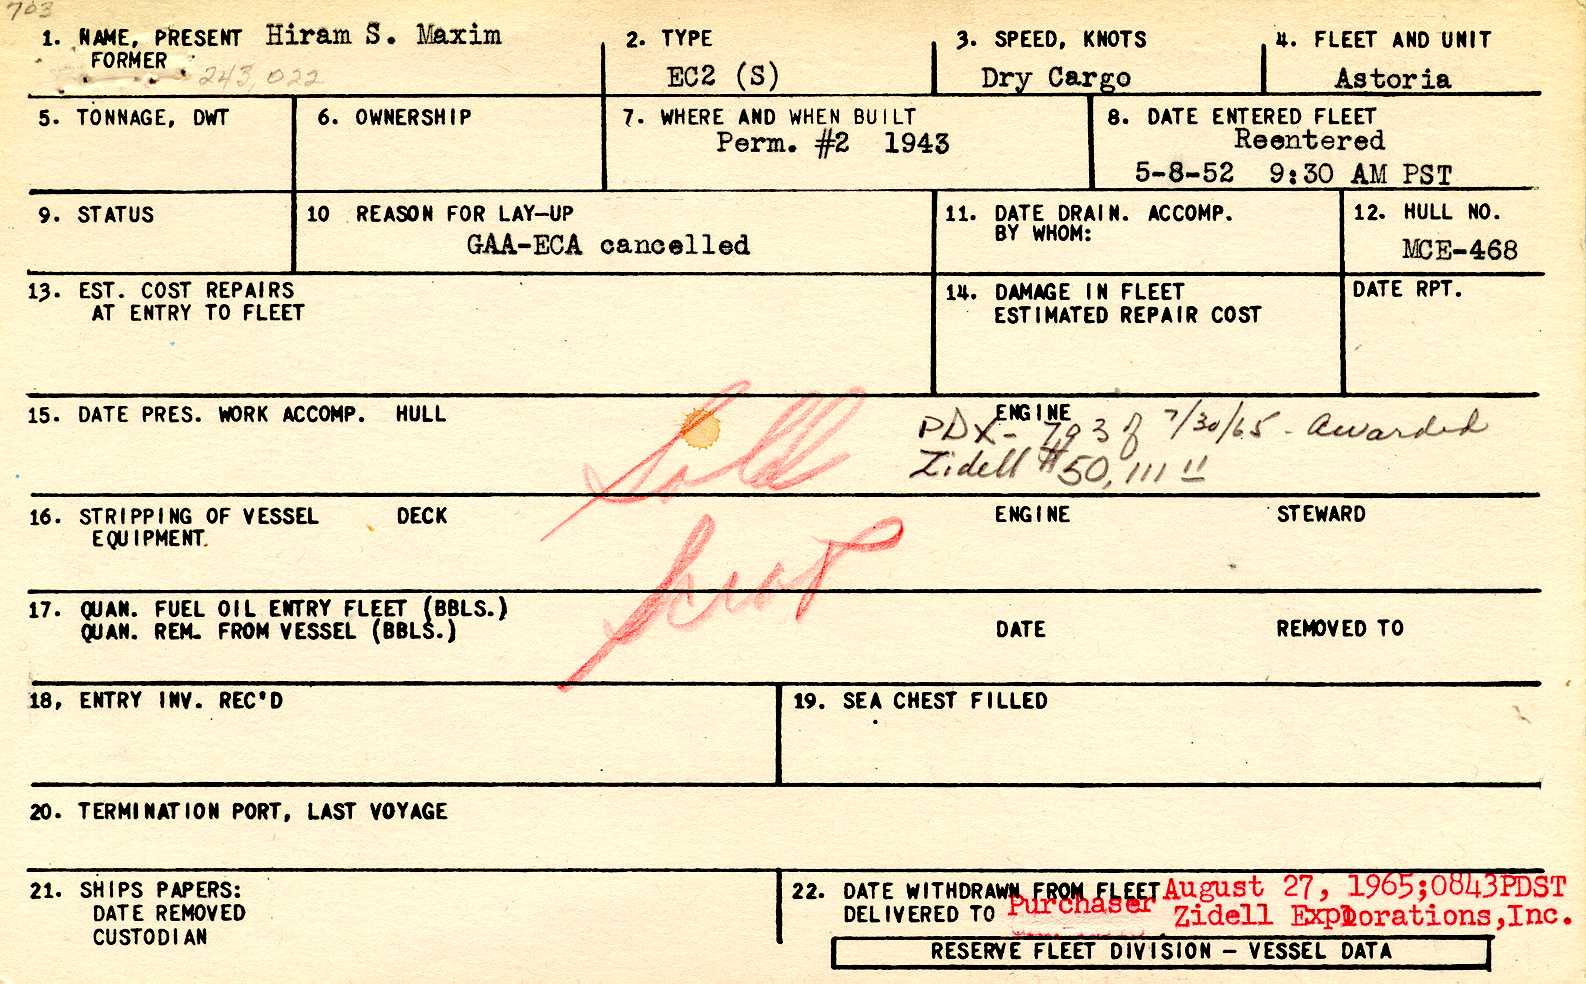 703
1. NAME, PRESENT Hiram S. Maxim
FORMER 243,022
2. TYPE
EC2 (S)
3. SPEED, KNOTS
Dry Cargo
4. FLEET AND UNIT
Astoria
5. TONNAGE, DWT
6. OWNERSHIP
7. WHERE AND WHEN BUILT
Perm. #2 1943
8. DATE ENTERED FLEET
Reentered
5-8-52 9:30 AM PST
9. STATUS
10 REASON FOR LAY-UP
GAA-ECA cancelled
11. DATE DRAIN. ACCOMP.
BY WHOM:
12. HULL NO.
MCE-468
13. EST. COST REPAIRS
AT ENTRY TO FLEET
14. DAMAGE IN FLEET
ESTIMATED REPAIR COST
DATE RPT.
15. DATE PRES. WORK ACCOMP. HULL
ENGINE
PDX- 793 of 7/30/65 - awarded
Zidell $50,111 11
Sold
16. STRIPPING OF VESSEL DECK ENGINE STEWARD
EQUIPMENT.
17. QUAN. FUEL OIL ENTRY FLEET (BBLS.)
QUAN. REM. FROM VESSEL (BBLS.) DATE REMOVED TO
18, ENTRY INV. REC'D
19. SEA CHEST FILLED
20. TERMINATION PORT, LAST VOYAGE
21. SHIPS PAPERS:
DATE REMOVED
CUSTODIAN
22. DATE WITHDRAWN FROM FLEET August 27, 1965;0843PDST
DELIVERED TO Purchaser Zidell Explorations,Inc.
RESERVE FLEET DIVISION - VESSEL DATA